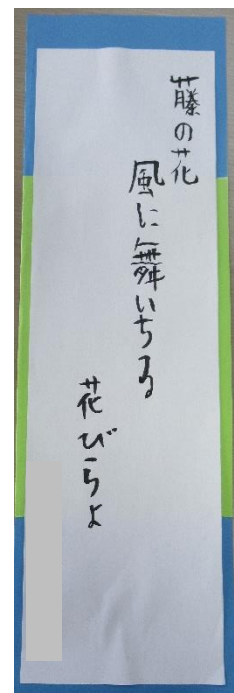 藤の花
風に舞いちる
花びらよ